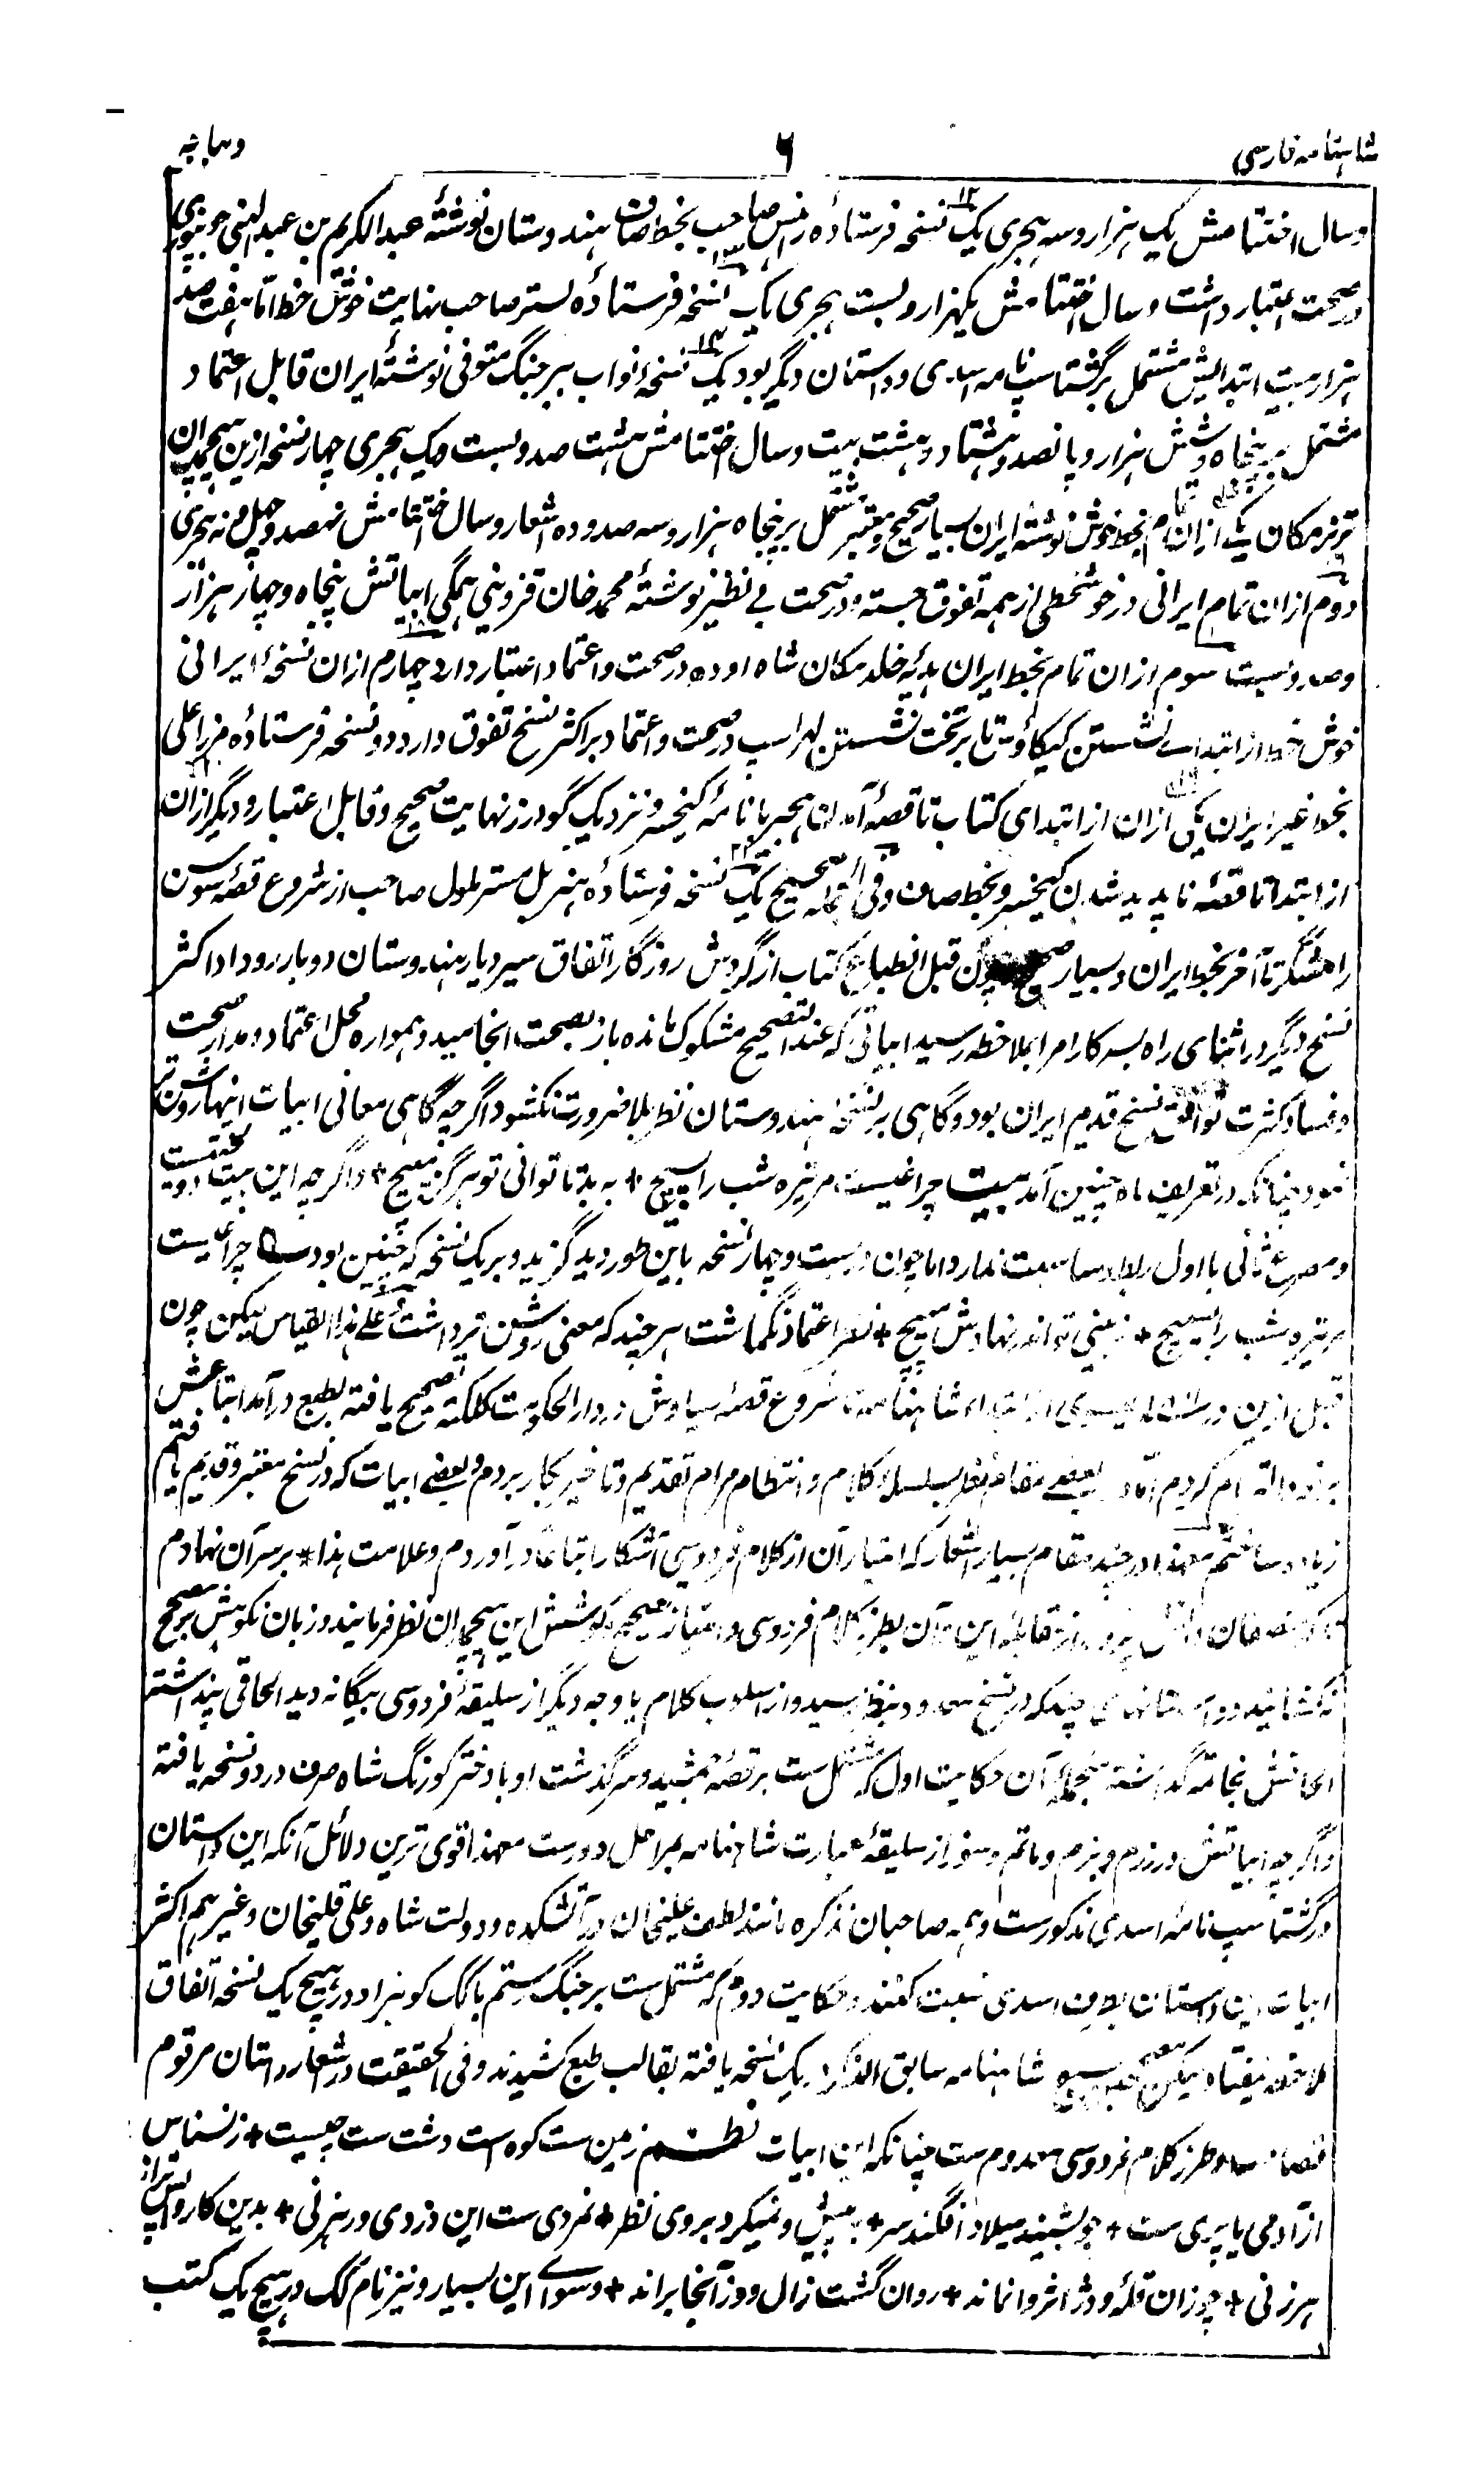 شاهنامه فارسی ۶ دیباچه
وسال اختتامش یک هزار و سه هجری یک نسخه فرستادهٔ رنس صاحب بخط صاف هندوستان نوشتهٔ عبدالکریم بن عبدالنبی جونپوری
در صحت اعتبار داشت و سال اختتامش یکهزار و بست هجری یک نسخه فرستادهٔ لستر صاحب نهایت خوش خط اما هفت صد
هزار بیت ابتدائیش مشتمل برگشتاسپ نامه اسدی و داستان دیگر بود یک نسخهٔ نواب ببر جنگ متوفی نوشتهٔ ایران قابل اعتماد
مشتمل بر پنجاه و شش هزار و پانصد و هشتاد و هشت بیت و سال اختتامش هشت صد و بست و یک هجری چهار نسخه ازین هیچمدان
تیز مکان یکی ازان تمام بخط خوش نوشتهٔ ایران بسیار صحیح و معتبر مشتمل بر پنجاه هزار و سه صد و ده اشعار و سال اختتامش نهصد و چهل و نه هجری
دوم ازان تمام ایرانی در خوشخطی از همه تفوق جسته و در صحت بی نظیر نوشتهٔ محمد خان قزوینی همگی ابیاتش پنجاه و چهار هزار
و صد و بست سوم ازان تمام بخط ایران هدیهٔ خلد مکان شاه اوده در صحت و اعتماد اعتبار دارد چهارم ازان نسخهٔ ایرانی
خوش خط از ابتداے نشستن کیکاؤس تا بر تخت نشستن لهراسپ در صحت و اعتماد بر اکثر نسخ تفوق دارد دو نسخه فرستادهٔ مرزا علی
بخط غیر ایران یکی ازان از ابتدای کتاب تا قصهٔ آمدن هجیر با نامهٔ کیخسرو نزدیک گودرز نهایت صحیح و قابل اعتبار و دیگر ازان
از ابتدا تا قصهٔ ناپدید شدن کیخسرو بخط صاف و فی الجمله صحیح یک نسخه فرستادهٔ هنریل مستر لمول صاحب از شروع قصهٔ سوسن
رامشگر تا آخر بخط ایران و بسیار صحیح چون قبل انطباع کتاب از گردش روزگار اتفاق سیر دیار هندوستان دوبار رو داد اکثر
نسخ دیگر در اثنای راه بسرکار امرا بملاحظه رسید ابیاتی که عند التصحیح مشکوک مانده باز بصحت انجامید و همواره محل اعتماد و مدار صحت
و فساد کثرت توافق نسخ قدیم ایران بود و گاهی بر نسخهٔ هندوستان نظر بلا ضرورت نکشود اگرچه گاهی معانی ابیات اینها روشن تر
نمود چنانکه در تعریف ماه چنین آمد بیت چراغیست مر تیره شب را بسیچ + به بد تا توانی تو هرگز مپیچ + و اگرچه این بیت دو بیت
و مصرع ثانی با اول ربط و مناسبت ندارد اما چون در بست و چهار نسخه باین طور دید گزید و بر یک نسخه که چنین بود چراغیست
مر تیره شب را بسیچ + نبینی تو اندر نهادش مپیچ + نظر اعتماد نگماشت هرچند که معنی روشن تر داشت علے هذا القیاس لیکن چون
قبل ازین در عیسوی از ابتداء شاهنامه تا شروع قصهٔ سیاوش در دارالحکومت کلکته تصحیح یافته بطبع درآمد اتباعش
کردم اما در بعضے مقام نظر بسلسلهٔ کلام و انتظام مرام تقدیم و تاخیر بکار بردم و بعضے ابیات که در نسخ معتبر و قدیم یافتم
زیاده ساختم معهذا در چند مقام بسیار اشعار که امتیاز آن از کلام فردوسی آشکارا اتباعاً درآوردم و علامت هذا * بر سر آن نهادم
تا که منصفان این بآن بطرز کلام فردوسی و امتیاز تصحیح کوشش این هیچمدان نظر فرمایند و زبان نکوهش بر مصحح
نکشایند و داستانهای چند که در نسخ معدود بنظر رسید و از اسلوب کلام یا وجه دیگر از سلیقهٔ فردوسی بیگانه دید الحاقی پنداشته
الحاقش بخاتمه گذاشته منجملهٔ آن حکایت اول که مشتمل ست بر قصهٔ جمشید و سرگذشت او با دختر کورنگ شاه صرف در دو نسخه یافته
و اگرچه ابیاتش در رزم و بزم و ماتم و سوز از سلیقهٔ عبارت شاهنامه بمراحل دورست معهذا قوی ترین دلائل آنکه این داستان
در گشتاسپ نامهٔ اسدی مذکورست و همه صاحبان تذکره مانند لطف علیخان در آتشکده و دولت شاه و علی قلیخان و غیرهم اکثر
ابیات این داستان بطرف اسدی نسبت کنند و حکایت دوم که مشتمل ست بر جنگ رستم با کک کوهزاد در هیچ یک نسخه اتفاق
ملاحظه نیفتاد لیکن مصحح شاهنامه سابق الذکر در یک نسخه یافته بقالب طبع کشیدند و فی الحقیقت در اشعار داستان مرقوم
فصاحت و طرز کلام فردوسی معدوم ست چنانکه این ابیات نظم زمین ست کوه ست دشت ست چیست + ز نسناس
از آدمی یا پری ست + چو بشنید میلاد افگند سر + به پیش و نمیکرد بروی نظر + نمردی ست این دزدی و رهزنی + بدین کار و این
هرزنی + چو زان قلعه و دژ اثر وا نماند + روان گشت زال و وز آنجا براند + و سوائے این بسیار و نیز نام کک در هیچ یک کتب